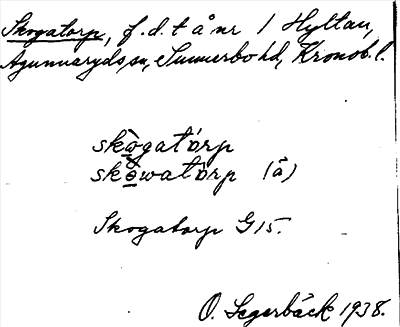 Skogatorp, f.d. t å nr 1 Hyltan,
Agunnaryds sn, Sunnerbo hd, Kronob. l.
skògatórp
skòwatórp (ä)
Skogatorp G 15.
O. Segerbäck 1938.